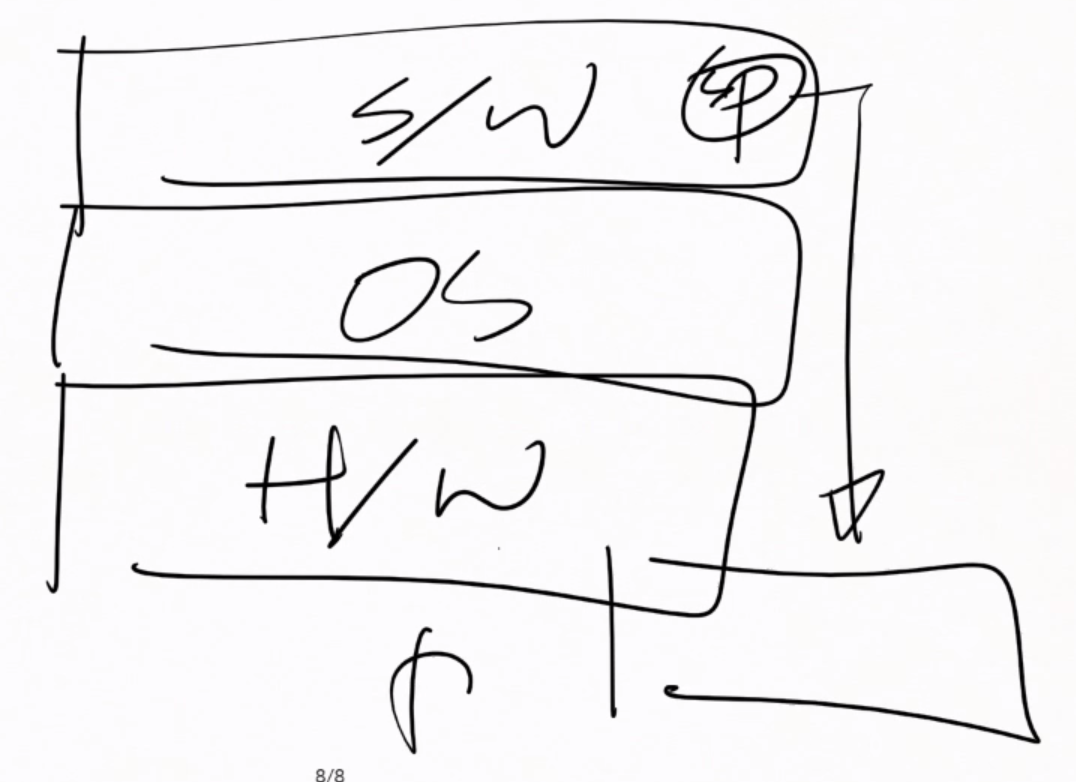 S/W
OS
H/W
8/8